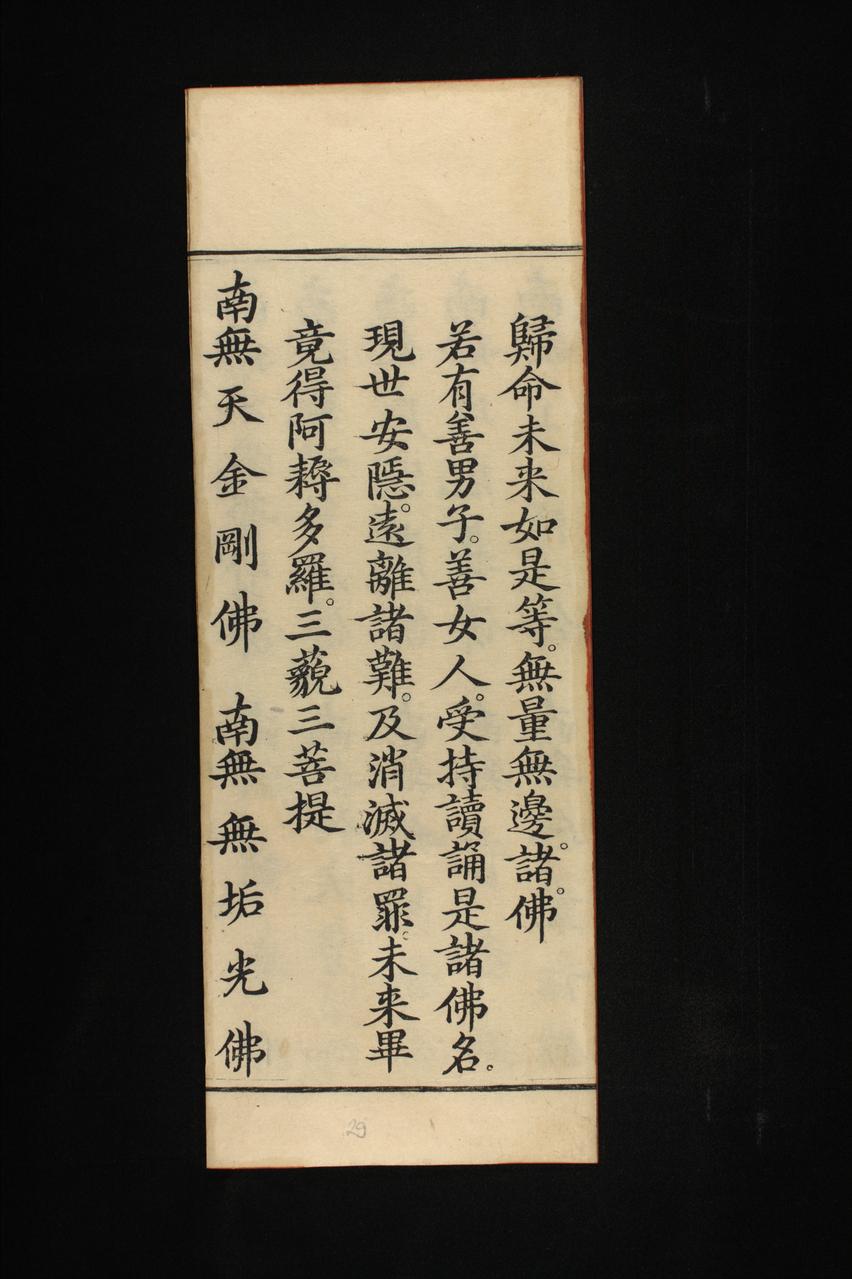 歸命未来如是等。無量無邊。諸。佛
若有善男子。善女人。受持讀誦是諸佛名。
現世安隱。遠離諸難。及消滅諸罪。未来畢
竟得阿耨多羅。三藐三菩提
南無天金剛佛　南無無垢光佛
29